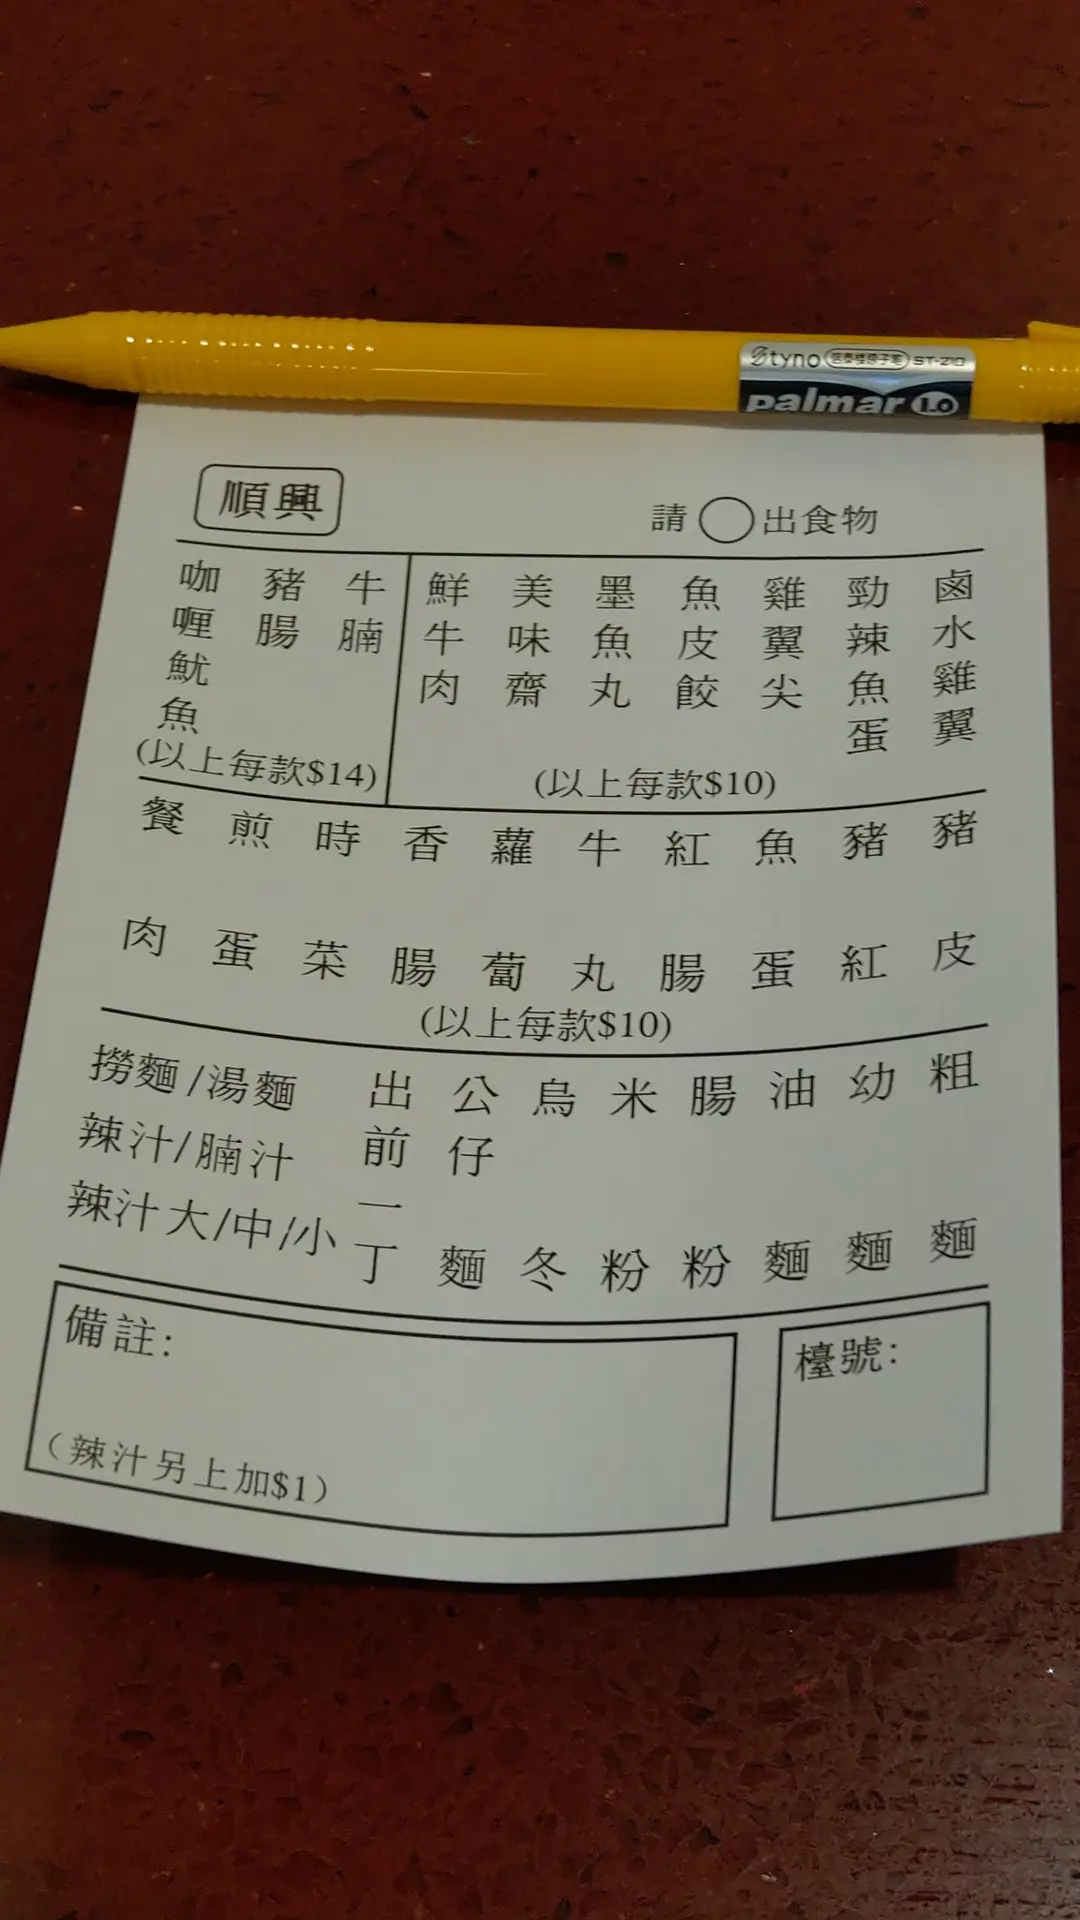 tyno
ST-210
palmar 1.0
順興
請○出食物
鹵水雞翼
勁辣魚蛋
雞翼尖
魚皮餃
墨魚丸
美味齋
鮮牛肉
(以上每款$10)
牛腩
豬腸
咖喱魷魚
(以上每款$14)
豬皮
豬紅
魚蛋
紅腸
牛丸
蘿蔔
香腸
時菜
煎蛋
餐肉
(以上每款$10)
粗麵
幼麵
油麵
腸粉
米粉
烏冬
公仔麵
出前一丁
撈麵/湯麵
辣汁/腩汁
辣汁大/中/小
備註:
(辣汁另上加$1)
檯號: